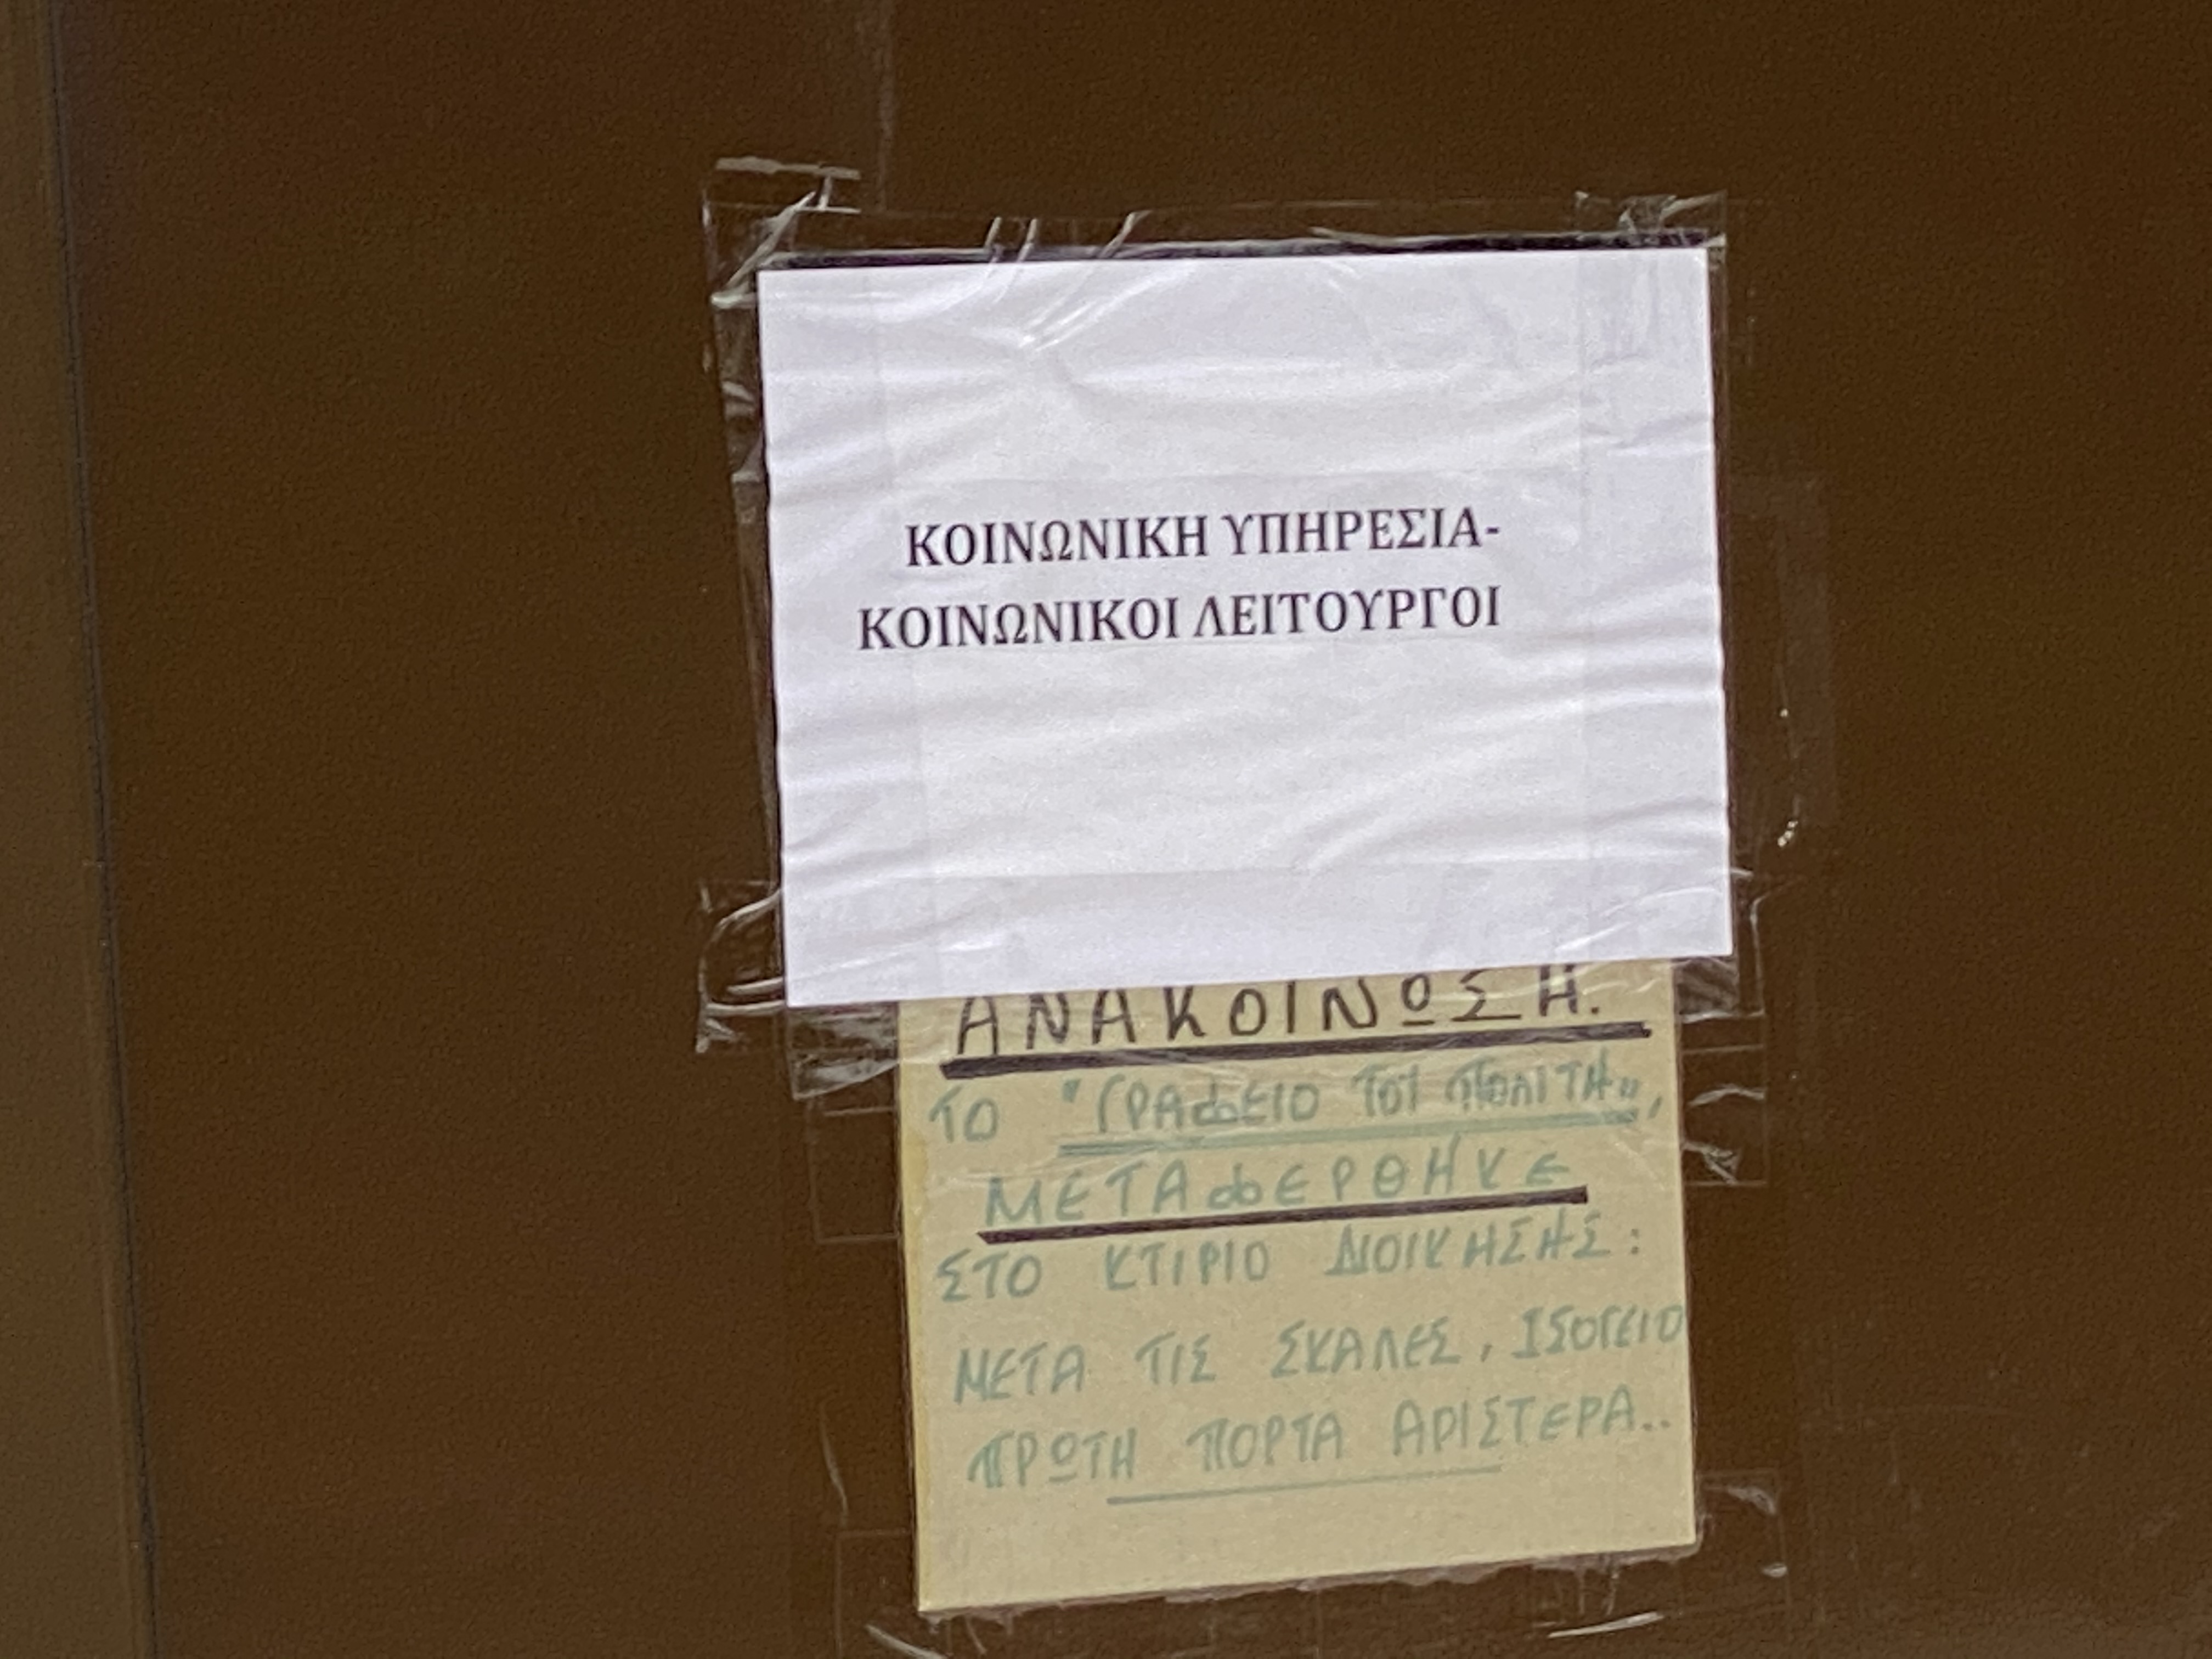 ΚΟΙΝΩΝΙΚΗ ΥΠΗΡΕΣΙΑ-
ΚΟΙΝΩΝΙΚΟΙ ΛΕΙΤΟΥΡΓΟΙ
ΑΝΑΚΟΙΝΩΣΗ.
ΤΟ "ΓΡΑΦΕΙΟ ΤΟΥ ΠΟΛΙΤΗ",
ΜΕΤΑΦΕΡΘΗΚΕ
ΣΤΟ ΚΤΙΡΙΟ ΔΙΟΙΚΗΣΗΣ:
ΜΕΤΑ ΤΙΣ ΣΚΑΛΕΣ, ΙΣΟΓΕΙΟ
ΠΡΩΤΗ ΠΟΡΤΑ ΑΡΙΣΤΕΡΑ..